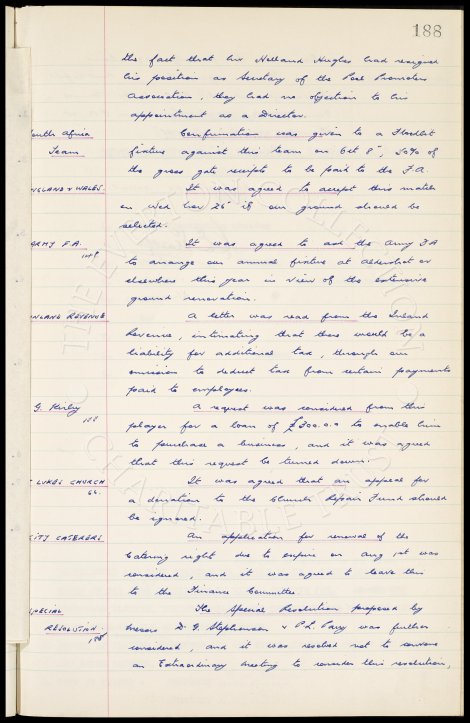 188
the fact that Mr Holland Hughes had resigned
his position as Secretary of the Pool Promoters
Association, they had no objection to his
appointment as a Director.
South Africa Confirmation was given to a Floodlit
Team fixture against this team on Oct 8", 20% of
the gross gate receipts to be paid to the F.A.
ENGLAND v WALES. It was agreed to accept this match
on Wed Nov 26" if our ground should be
selected.
ARMY F.A. It was agreed to ask the Army FA
to arrange our annual fixture at Aldershot or
elsewhere this year in view of the extensive
ground renovation.
INLAND REVENUE A letter was read from the Inland
Revenue, intimating that there would be a
liability for additional tax, through our
omission to deduct tax from certain payments
paid to employees.
G. Kirby A request was considered from this
188 player for a loan of £300.0.0 to enable him
to purchase a business, and it was agreed
that this request be turned down.
LUKES CHURCH It was agreed that an appeal for
a donation to the Church Repair Fund should
be ignored.
CITY CATERERS An application for renewal of the
Catering right due to expire on Aug 1st was
considered, and it was agreed to leave this
to the Finance Committee.
SPECIAL The Special Resolution proposed by
RESOLUTION. Messrs D. G. Stephenson & P. L. Parry was further
considered, and it was resolved not to convene
an Extraordinary Meeting to consider this resolution,
THE EVERTON COLLECTION
CHARITABLE TRUST